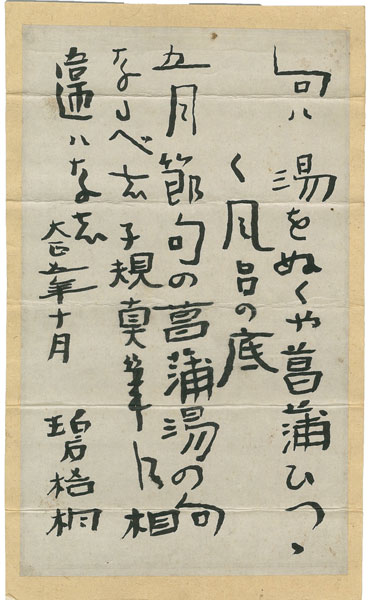 句ハ 湯をぬくや菖蒲ひつゝ
く風呂の底
五月節句の菖蒲湯の句
なるべし 子規真筆に相
違ハなし
大正五年十月
碧梧桐